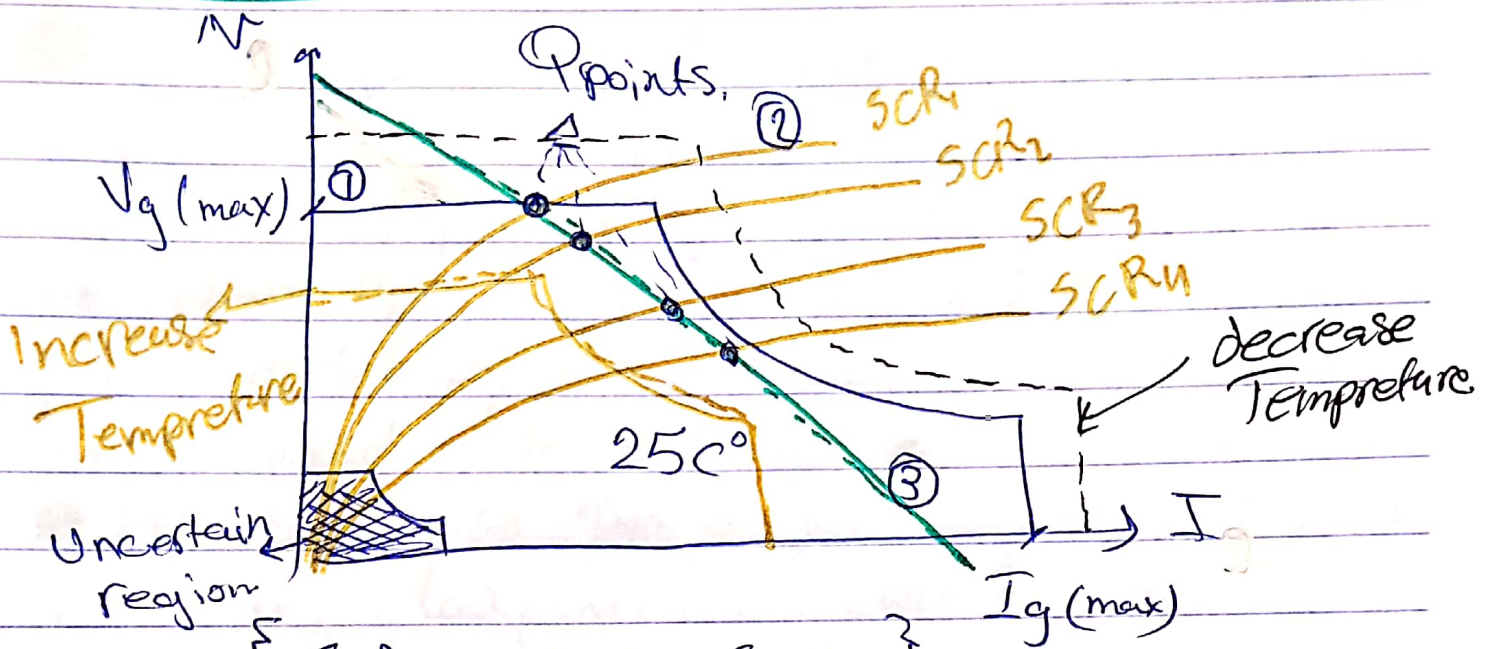 Vg
Qpoints.
②
SCR1
SCR2
Vg (max)
①
SCR3
SCR4
Increase
Tempreture
decrease
Tempreture
25C°
③
Uncertain
region
Ig
Ig (max)